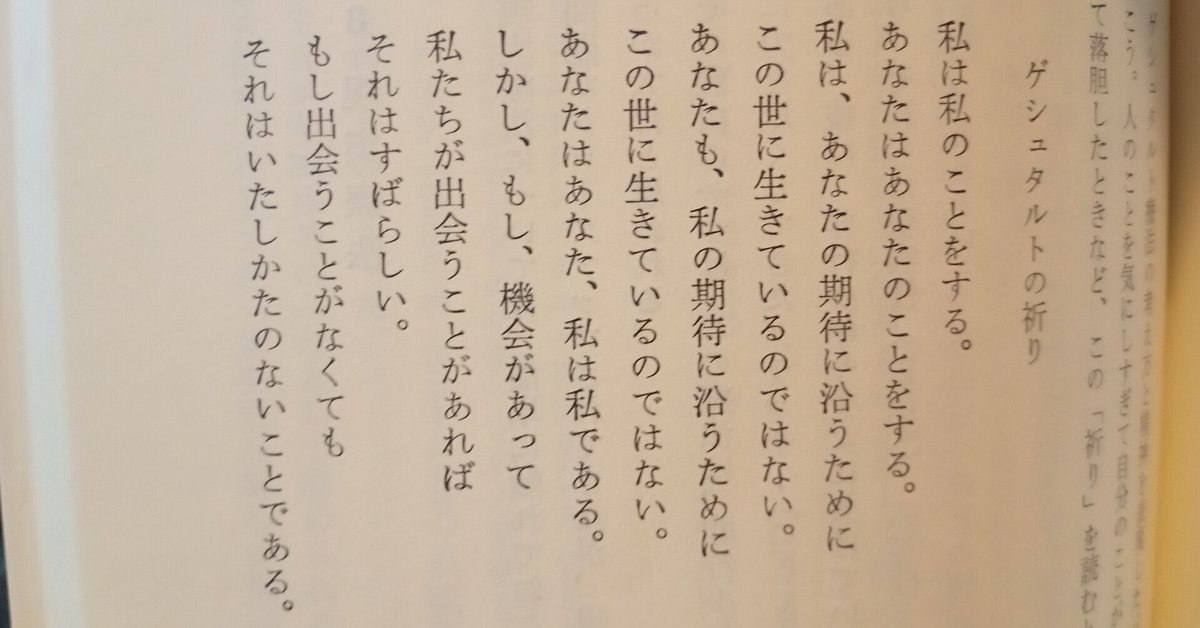 ゲシュタルト療法の考え方と精神を表現した
こう。人のことを気にしすぎて自分のことが
て落胆したときなど、この「祈り」を読む
ゲシュタルトの祈り
私は私のことをする。
あなたはあなたのことをする。
私は、あなたの期待に沿うために
この世に生きているのではない。
あなたも、私の期待に沿うために
この世に生きているのではない。
あなたはあなた、私は私である。
しかし、もし、機会があって
私たちが出会うことがあれば
それはすばらしい。
もし出会うことがなくても
それはいたしかたのないことである。